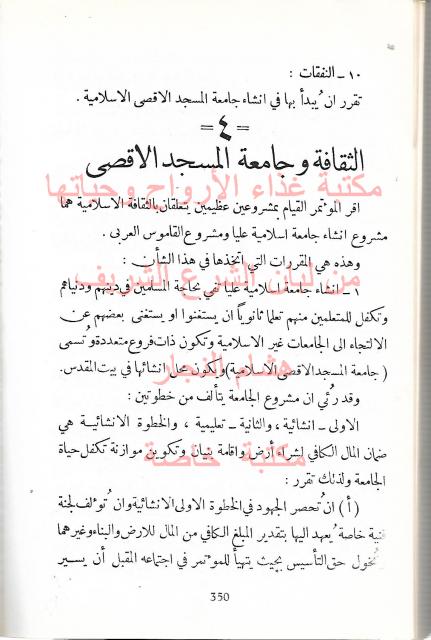 ١٠ – النفقات :
تقرر ان يُبدأ بها في انشاء جامعة المسجد الاقصى الاسلامية .
= ٤ =
الثقافة وجامعة المسجد الاقصى
مكتبة غذاء الأرواح وحياتها
اقر المؤتمر القيام بمشروعين عظيمين يتعلقان بالثقافة الاسلامية هما
مشروع انشاء جامعة اسلامية عليا ومشروع القاموس العربى .
وهذه هي المقررات التي اتخذها في هذا الشأن :
من لبان الشرع الشريف
١ – انشاء جامعة اسلامية عليا تفي بحاجة المسلمين في دينهم ودنياهم
وتكفل للمتعلمين منهم تعلما ثانوياً ان يستغنوا او يستغنى بعضهم عن
الالتجاء الى الجامعات غير الاسلامية وتكون ذات فروع متعددة وتُسمى
( جامعة المسجد الاقصى الاسلامية ) ويكون محل انشائها في بيت المقدس .
هشام النجار
وقد رُئي ان مشروع الجامعة يتألف من خطوتين :
الاولى – انشائية ، والثانية – تعليمية ، والخطوة الانشائية هي
ضمان المال الكافي لشراء أرض واقامة بنيان وتكوين موازنة تكفل حياة
مكتبة خاصة
الجامعة ولذلك تقرر :
( أ ) ان تُحصر الجهود في الخطوة الاولى الانشائية وان تُؤلف لجنة
فنية خاصة يُعهد اليها بتقدير المبلغ الكافي من المال للارض والبناء وغيرهما
وتُخول حق التأسيس بحيث يتهيأ للمؤتمر في اجتماعه المقبل أن يسير
350